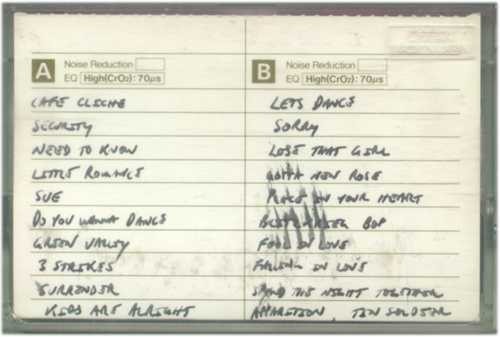 A Noise Reduction
EQ High(CrO2): 70µs
CAFE CLICHE
SECURITY
NEED TO KNOW
LITTLE ROMANCE
SUE
DO YOU WANNA DANCE
GREEN VALLEY
3 STRIKES
SURRENDER
KIDS ARE ALRIGHT
B Noise Reduction
EQ High(CrO2): 70µs
LETS DANCE
SORRY
LOSE THAT GIRL
GOTTA NEW ROSE
PLACE IN YOUR HEART
BOP
FOOL IN LOVE
FALLING IN LOVE
SPEND THE NIGHT TOGETHER
APPARITION, TIN SOLDIER